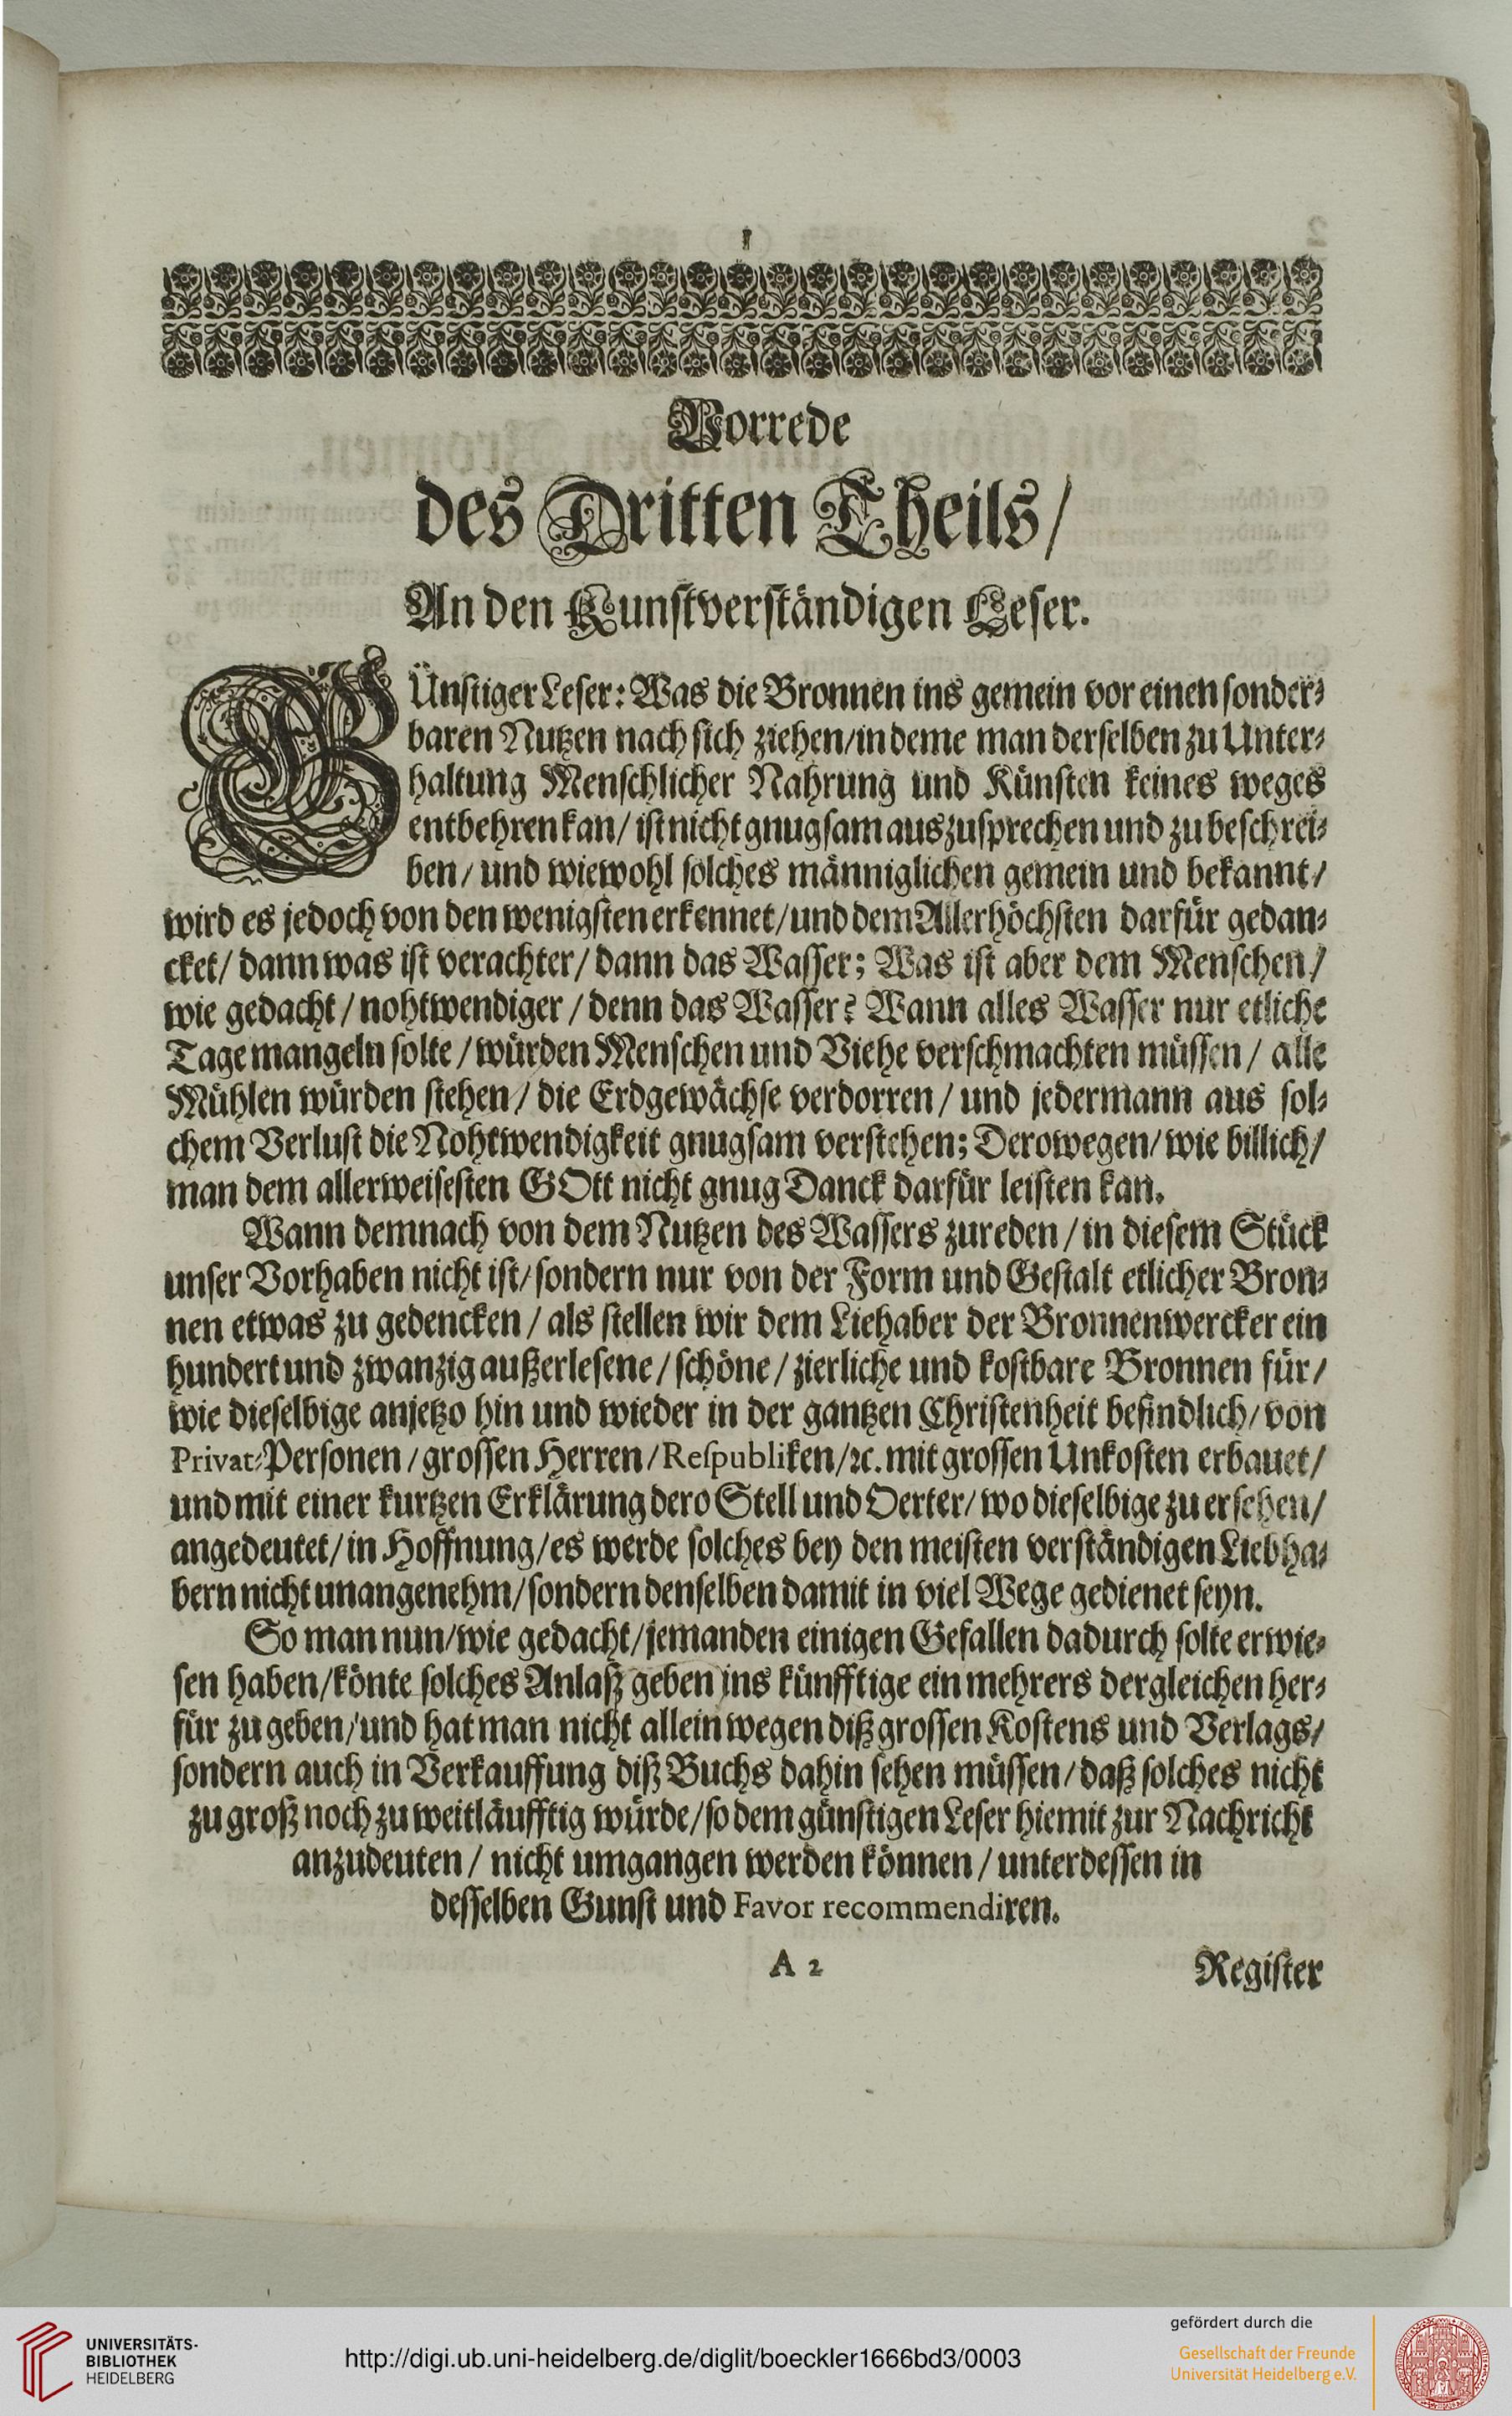 Vorrede
des Dritten Theils/
An den Kunstverständigen Leser.
GÜnstiger Leser: Was die Bronnen ins gemein vor einen sonder-
baren Nutzen nach sich ziehen/ in deme man derselben zu Unter-
haltung Menschlicher Nahrung und Künsten keines weges
entbehren kan/ ist nicht gnugsam auszusprechen und zu beschrei-
ben/ und wiewohl solches männiglichen gemein und bekannt/
wird es jedoch von den wenigsten erkennet/ und dem Allerhöchsten darfür gedan-
cket/ dann was ist verachter/ dann das Wasser; Was ist aber dem Menschen/
wie gedacht/ nohtwendiger/ denn das Wasser? Wann alles Wasser nur etliche
Tage mangeln solte/ würden Menschen und Viehe verschmachten müssen/ alle
Mühlen würden stehen/ die Erdgewächse verdorren/ und jedermann aus sol-
chem Verlust die Nohtwendigkeit gnugsam verstehen; Derowegen/ wie billich/
man dem allerweisesten GOtt nicht gnug Danck darfür leisten kan.
Wann demnach von dem Nutzen des Wassers zureden/ in diesem Stück
unser Vorhaben nicht ist/ sondern nur von der Form und Gestalt etlicher Bron-
nen etwas zu gedencken/ als stellen wir dem Liehaber der Bronnenwercker ein
hundert und zwanzig außerlesene/ schöne/ zierliche und kostbare Bronnen für/
wie dieselbige anjetzo hin und wieder in der gantzen Christenheit befindlich/ von
Privat-Personen/ grossen Herren/ Respubliken/ ꝛc. mit grossen Unkosten erbauet/
und mit einer kurtzen Erklärung dero Stell und Oerter/ wo dieselbige zu ersehen/
angedeutet/ in Hoffnung/ es werde solches bey den meisten verständigen Liebha-
bern nicht unangenehm/ sondern denselben damit in viel Wege gedienet seyn.
So man nun/ wie gedacht/ jemanden einigen Gefallen dadurch solte erwie-
sen haben/ könte solches Anlaß geben ins künfftige ein mehrers dergleichen her-
für zu geben/ und hat man nicht allein wegen diß grossen Kostens und Verlags/
sondern auch in Verkauffung diß Buchs dahin sehen müssen/ daß solches nicht
zu groß noch zu weitläufftig würde/ so dem günstigen Leser hiemit zur Nachricht
anzudeuten/ nicht umgangen werden können/ unterdessen in
desselben Gunst und Favor recommendiren.
A 2
Register
UNIVERSITÄTS-
BIBLIOTHEK
HEIDELBERG
http://digi.ub.uni-heidelberg.de/diglit/boeckler1666bd3/0003
gefördert durch die
Gesellschaft der Freunde
Universität Heidelberg e.V.